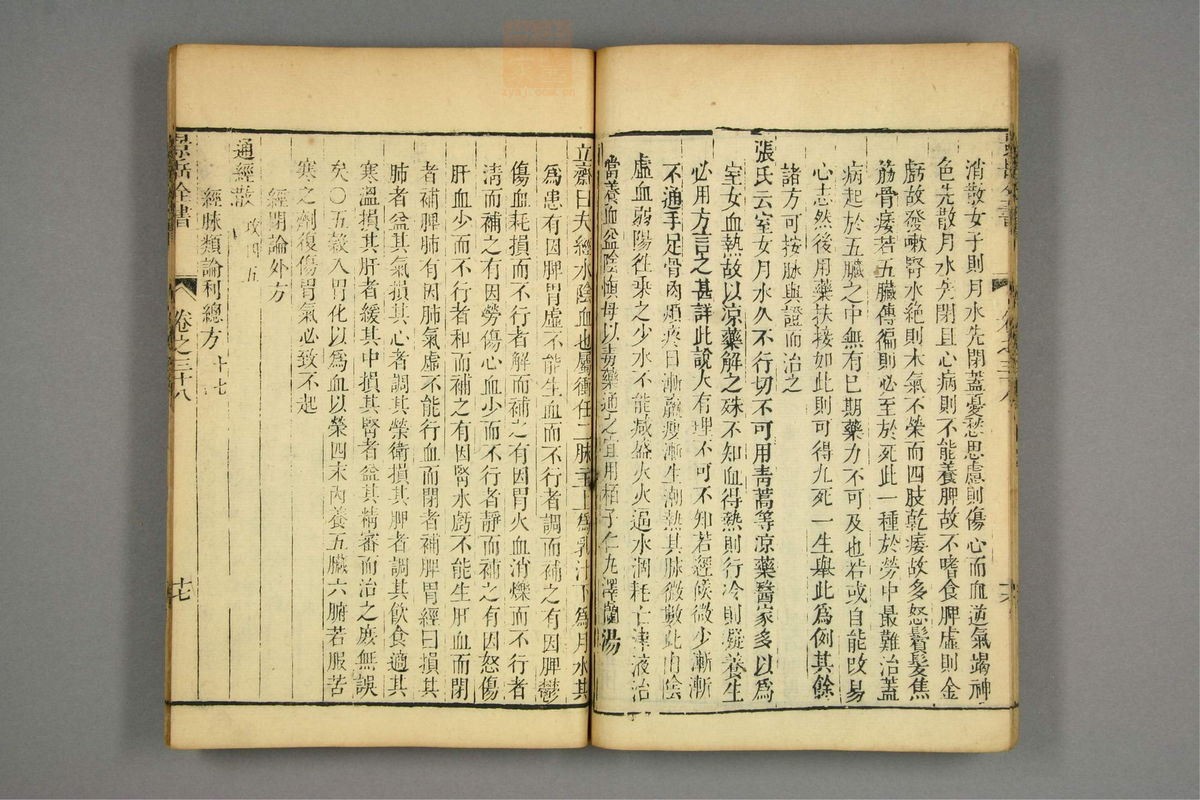 消散女子則月水先閉蓋憂愁思慮則傷心而血逆氣竭神
色先散月水先閉且心病則不能養脾故不嗜食脾虛則金
虧故發嗽腎水絕則木氣不榮而四肢乾痿故多怒鬢髮焦
筋骨痿若五臟傳徧則必至於死此一種於勞中最難治蓋
病起於五臟之中無有已期藥力不可及也若或自能改易
心志然後用藥扶接如此則可得九死一生舉此爲例其餘
諸方可按脉與證而治之
張氏云室女月水久不行切不可用青蒿等凉藥醫家多以爲
室女血熱故以凉藥解之殊不知血得熱則行冷則凝養生
必用方言之甚詳此說大有理不可不知若經候微少漸漸
不通手足骨肉煩疼日漸羸瘦漸生潮熱其脉微數此由陰
虛血弱陽往乘之少水不能滅盛火火逼水涸耗亡津液治
當養血益陰慎毋以毒藥通之宜用栢子仁丸澤蘭湯
立齋曰夫經水陰血也屬衝任二脉主上爲乳汁下爲月水其
爲患有因脾胃虛不能生血而不行者調而補之有因脾鬱
傷血耗損而不行者解而補之有因胃火血消爍而不行者
清而補之有因勞傷心血少而不行者靜而補之有因怒傷
肝血少而不行者和而補之有因腎水虧不能生肝血而閉
者補脾肺有因肺氣虛不能行血而閉者補脾胃經曰損其
肺者益其氣損其心者調其榮衛損其脾者調其飲食適其
寒溫損其肝者緩其中損其腎者益其精審而治之庶無誤
矣〇五穀入胃化以爲血以榮四末內養五臟六腑若服苦
寒之劑復傷胃氣必致不起
經閉論外方
通經散 攻四五
經脉類論利總方 十七
景岳全書
卷之三十八
十七